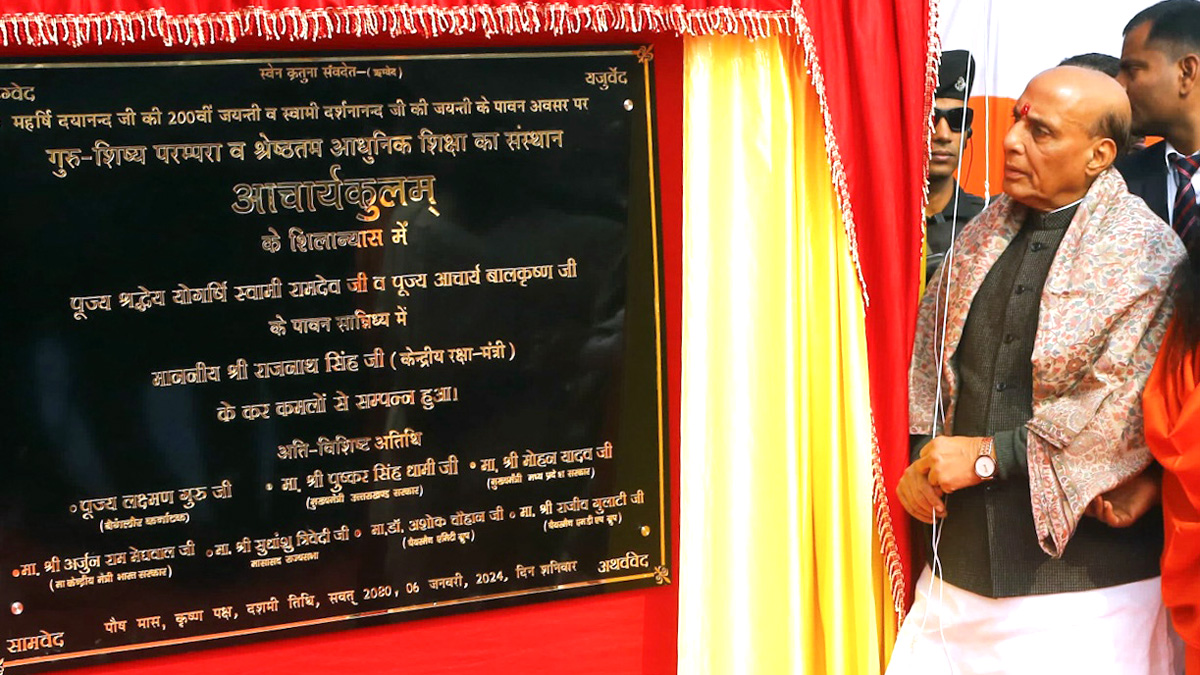 स्वेन क्रतुना संवदेत-(ऋग्वेद)
ऋग्वेद
यजुर्वेद
महर्षि दयानन्द जी की 200वीं जयन्ती व स्वामी दर्शनानन्द जी की जयन्ती के पावन अवसर पर
गुरु-शिष्य परम्परा व श्रेष्ठतम आधुनिक शिक्षा का संस्थान
आचार्यकुलम्
के शिलान्यास में
पूज्य श्रद्धेय योगर्षि स्वामी रामदेव जी व पूज्य आचार्य बालकृष्ण जी
के पावन सान्निध्य में
माननीय श्री राजनाथ सिंह जी (केन्द्रीय रक्षा-मंत्री)
के कर कमलों से सम्पन्न हुआ।
अति-विशिष्ट अतिथि
• पूज्य लक्ष्मण गुरु जी • मा. श्री पुष्कर सिंह धामी जी • मा. श्री मोहन यादव जी
(मुख्यमंत्री उत्तराखण्ड सरकार) (मुख्यमंत्री मध्य प्रदेश सरकार)
• मा. श्री अर्जुन राम मेघवाल जी • मा. श्री सुधांशु त्रिवेदी जी • मा.डॉ. अशोक चौहान जी • मा. श्री राजीव गुलाटी जी
(चेयरमैन एमिटी ग्रुप) (चेयरमैन एम डी एच ग्रुप)
पौष मास, कृष्ण पक्ष, दशमी तिथि, सवत् 2080, 06 जनवरी, 2024, दिन शनिवार
सामवेद
अथर्ववेद